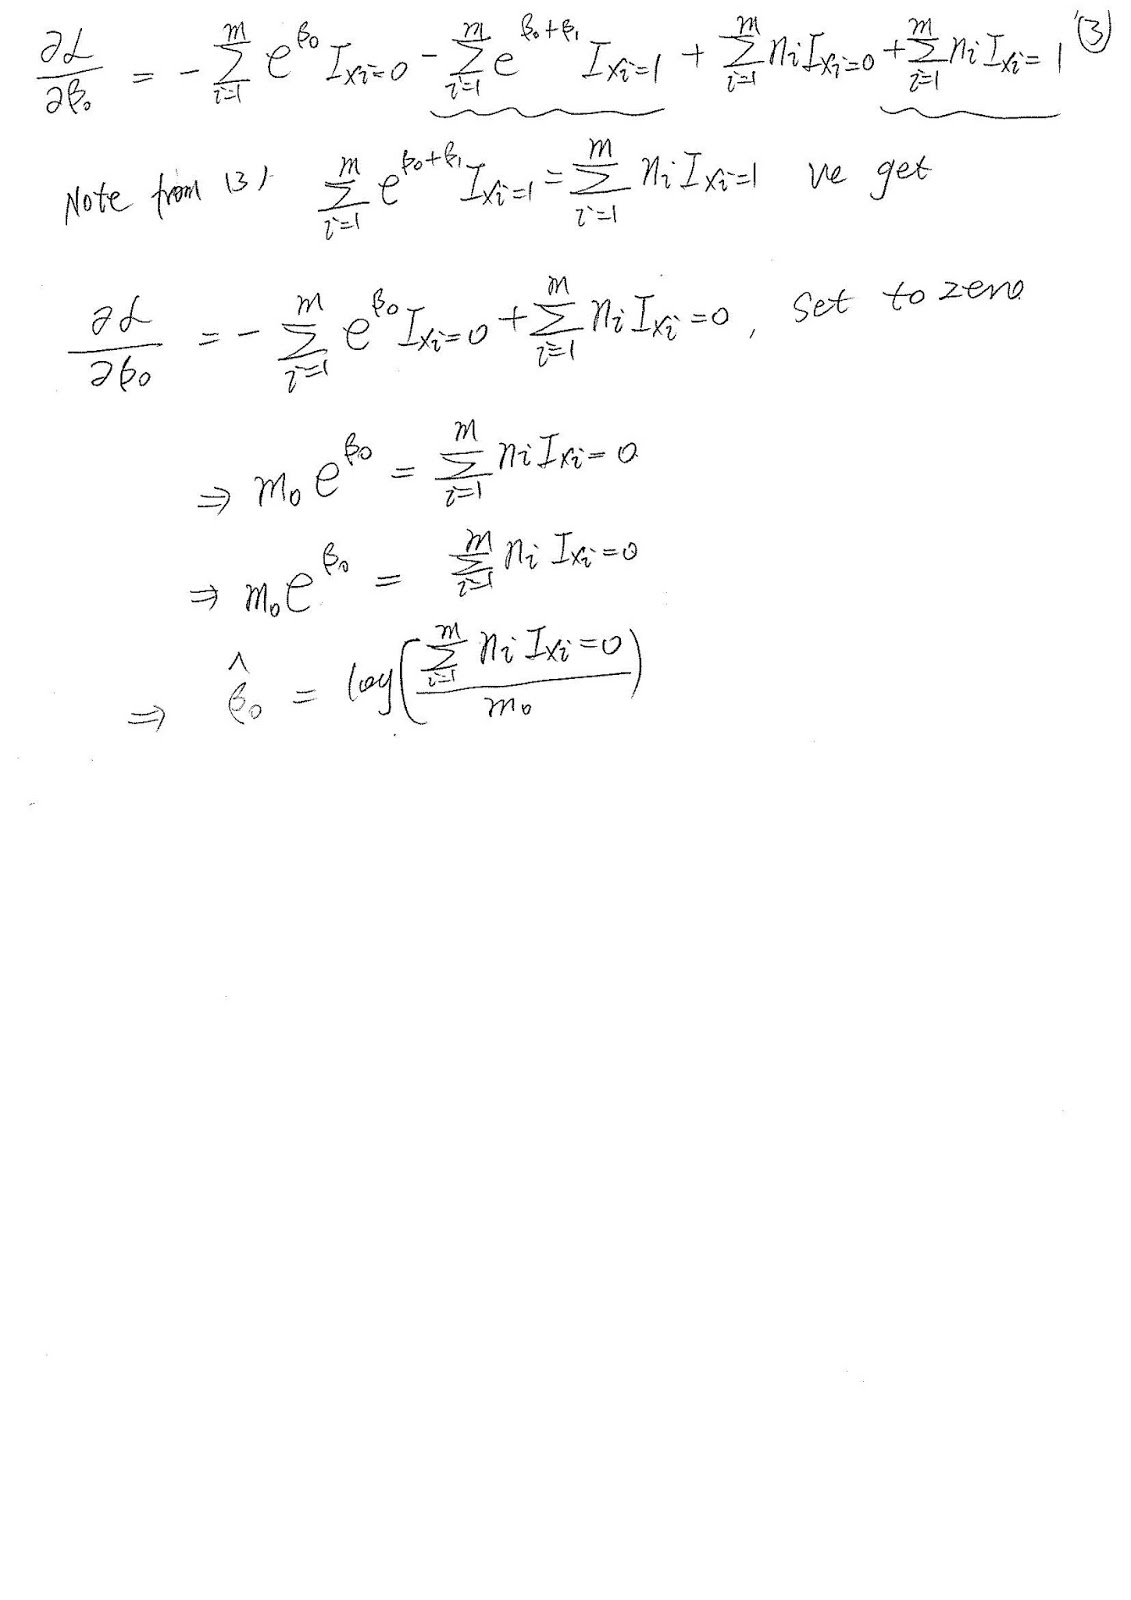 ∂L/∂β₀ = - Σ_{i=1}^{m} e^{β₀} I_{xi=0} - Σ_{i=1}^{m} e^{β₀+β₁} I_{xi=1} + Σ_{i=1}^{m} n_i I_{xi=0} + Σ_{i=1}^{m} n_i I_{xi=1} (3)
Note from (3) Σ_{i=1}^{m} e^{β₀+β₁} I_{xi=1} = Σ_{i=1}^{m} n_i I_{xi=1} we get
∂L/∂β₀ = - Σ_{i=1}^{m} e^{β₀} I_{xi=0} + Σ_{i=1}^{m} n_i I_{xi=0}, set to zero
⇒ m₀ e^{β₀} = Σ_{i=1}^{m} n_i I_{xi=0}
⇒ m₀ e^{β₀} = Σ_{i=1}^{m} n_i I_{xi=0}
⇒ β̂₀ = log(Σ_{i=1}^{m} n_i I_{xi=0} / m₀)